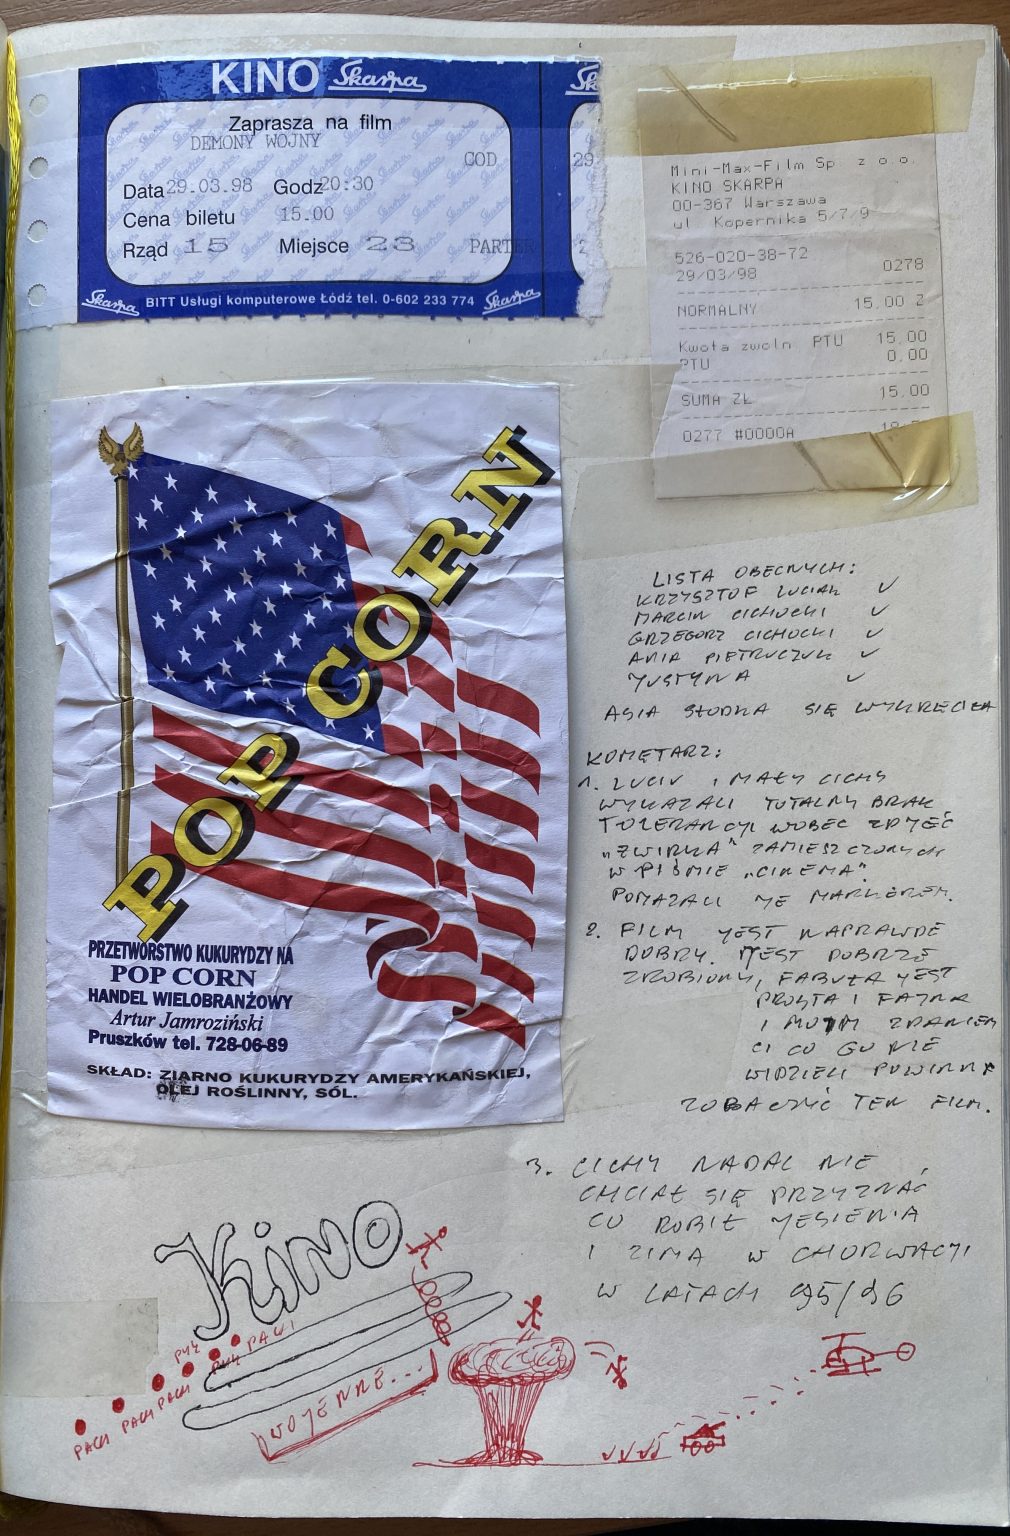 KINO Skarpa
Zaprasza na film
DEMONY WOJNY
COD
Data 29.03.98 Godz 20:30
Cena biletu 15.00
Rząd 15 Miejsce 23 PARTER
BITT Usługi komputerowe Łódź tel. 0-602 233 774
Skarpa
Skarpa
Sk
29.
2
Mini-Max-Film Sp z o.o.
KINO SKARPA
00-367 Warszawa
ul Kopernika 5/7/9
526-020-38-72
29/03/98 0278
NORMALNY 15,00 Z
Kwota zwoln PTU 15,00
PTU 0.00
SUMA ZŁ 15,00
0277 #0000A
POP CORN
PRZETWÓRSTWO KUKURYDZY NA
POP CORN
HANDEL WIELOBRANŻOWY
Artur Jamroziński
Pruszków tel. 728-06-89
SKŁAD: ZIARNO KUKURYDZY AMERYKAŃSKIEJ,
OLEJ ROŚLINNY, SÓL.
LISTA OBECNYCH:
KRZYSZTOF LUCIAK ✓
MARCIN CICHOCKI ✓
GRZEGORZ CICHOCKI ✓
ANIA PIETRUCZUK ✓
JUSTYNA ✓
ASIA SŁODKA SIĘ WYKRĘCIŁA
KOMĘTARZ:
1. LUCIU I MAŁY CICHY
WYKAZALI TOTALNY BRAK
TOLERANCJI WOBEC ZDJĘĆ
"ŻWIRKA" ZAMIESZCZONYCH
W PIŚMIE "CINEMA".
POMAZALI JE MARKEREM.
2. FILM JEST NAPRAWDĘ
DOBRY. JEST DOBRZE
ZROBIONY, FABUŁA JEST
PROSTA I FAJNA
I MOIM ZDANIEM
CI CO GO NIE
WIDZIELI POWINNI
ZOBACZYĆ TEN FILM.
3. CICHY NADAL NIE
CHCIAŁ SIĘ PRZYZNAĆ
CO ROBIŁ JESIENIĄ
I ZIMĄ W CHORWACJI
W LATACH 95/96
Kino
WOJENNE...
PACH PACH PACH